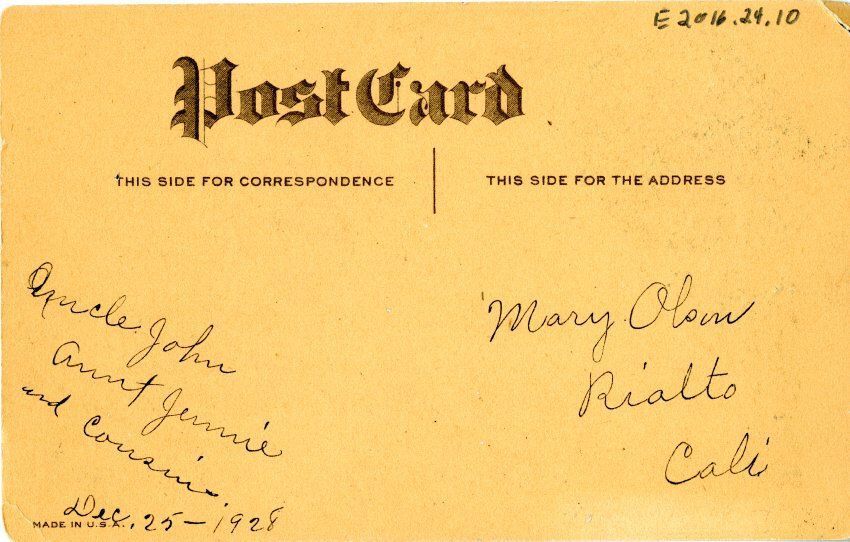 E2016.24.10
Post Card
THIS SIDE FOR CORRESPONDENCE
THIS SIDE FOR THE ADDRESS
Uncle John
Aunt Jennie
and Cousins.
Dec. 25-1928
MADE IN U.S.A.
Mary Olson
Rialto
Cali